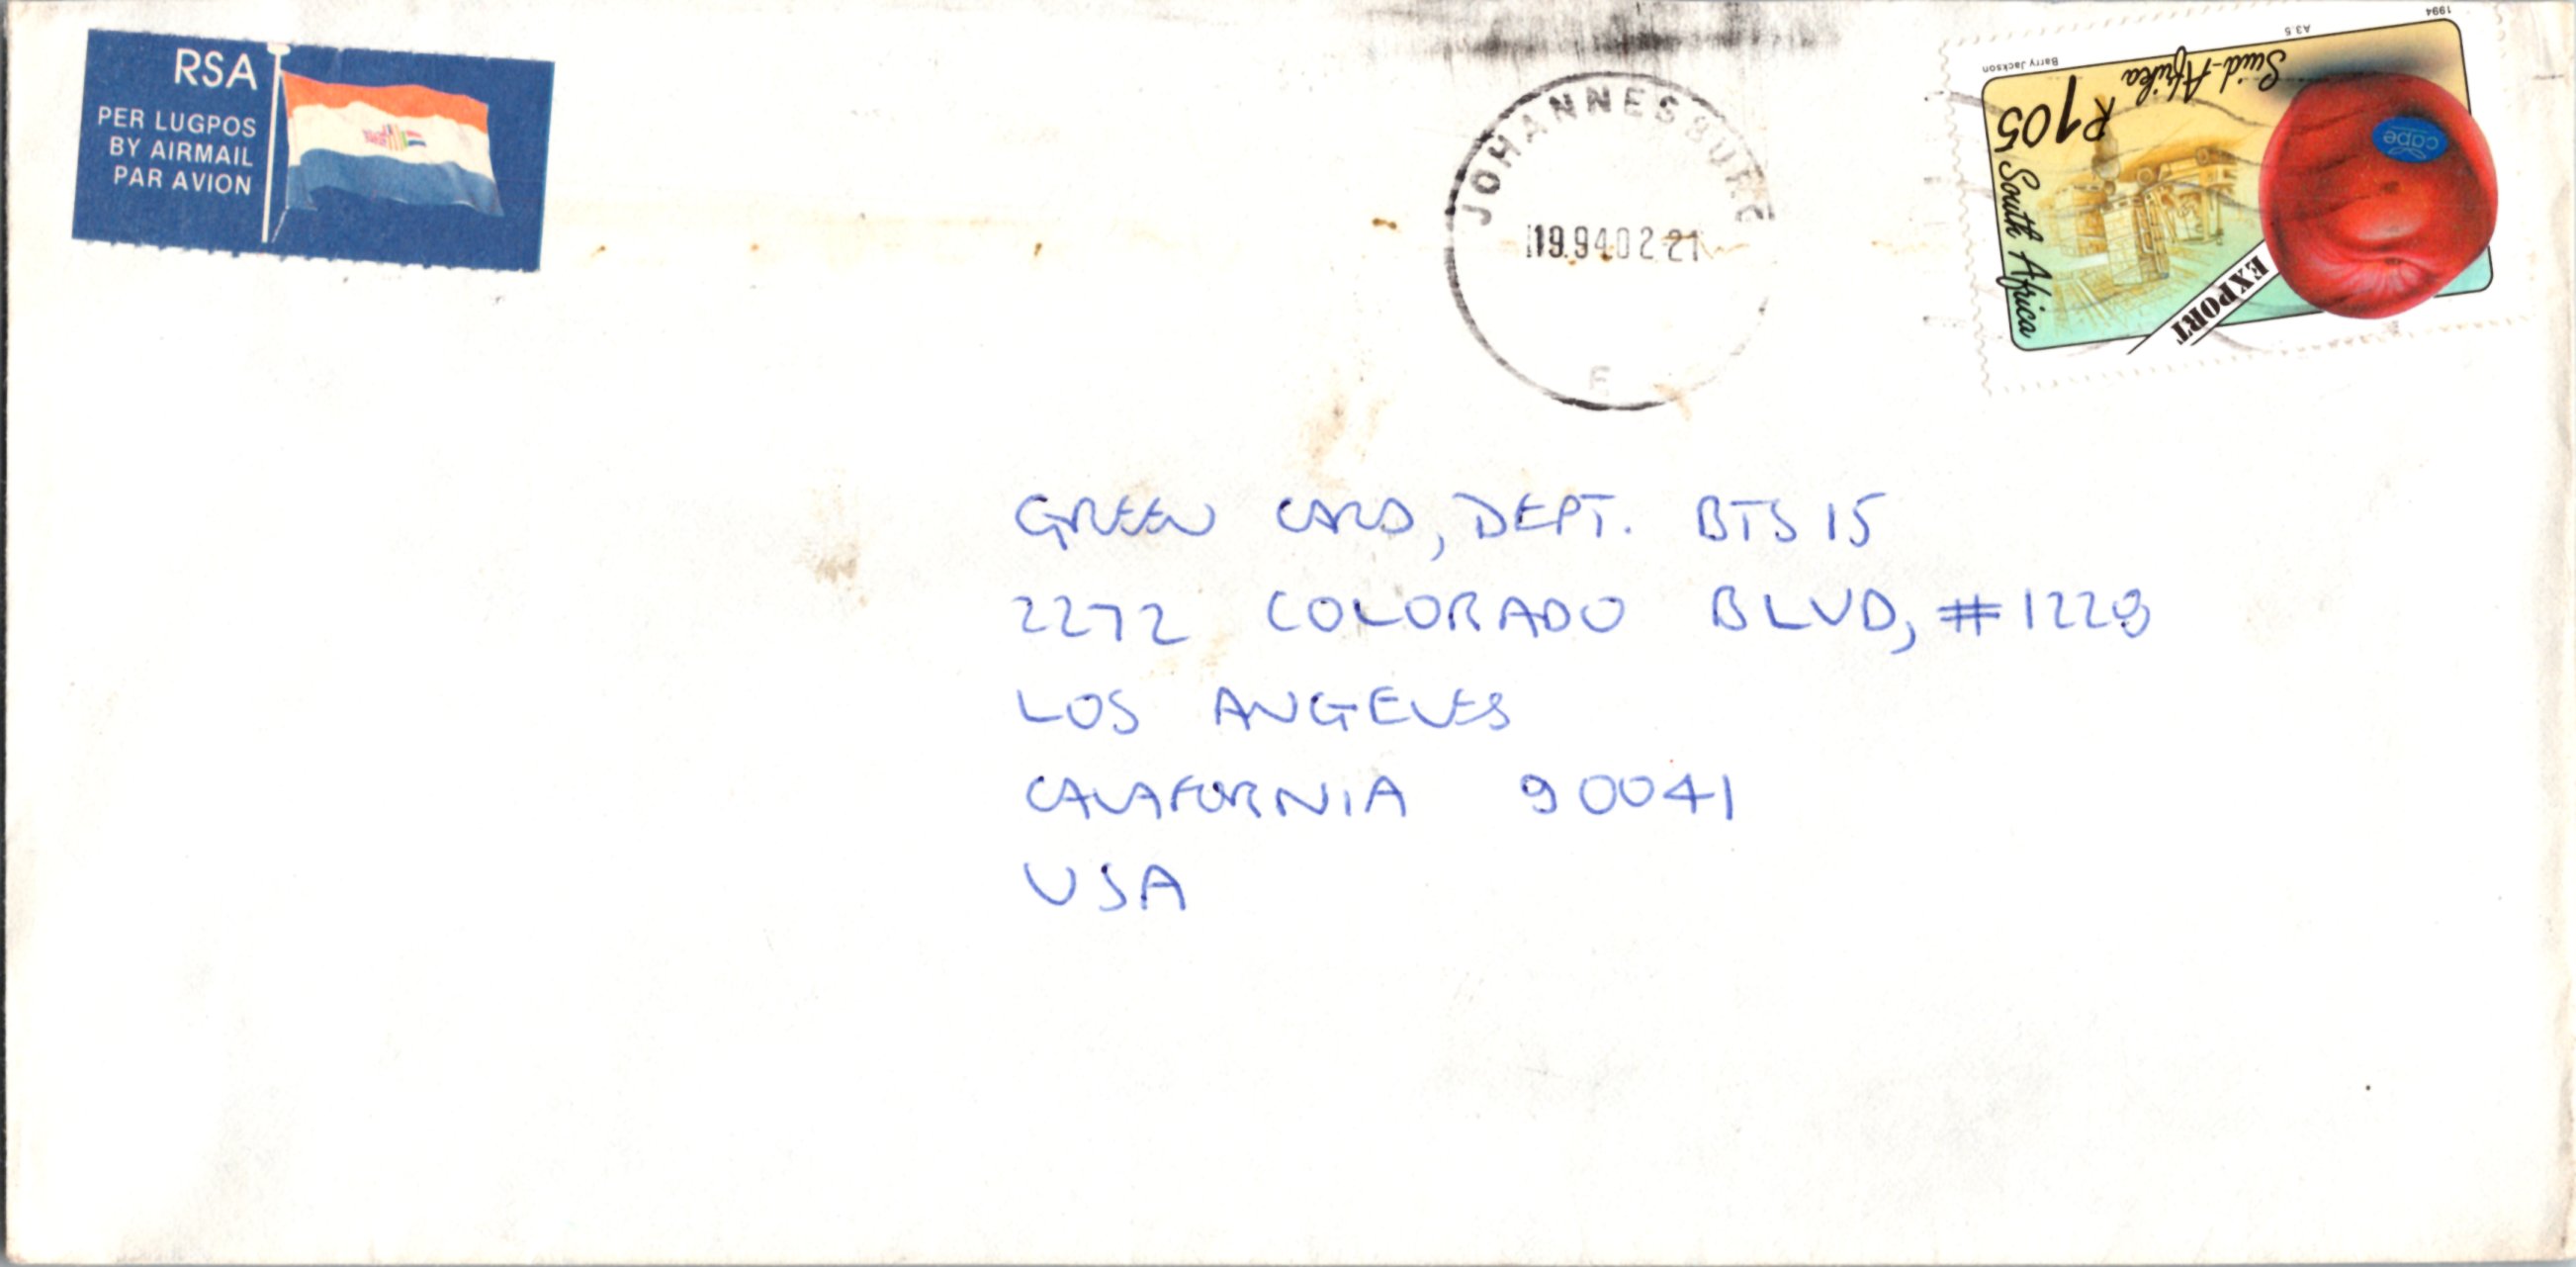 RSA
PER LUGPOS
BY AIRMAIL
PAR AVION
JOHANNESBURG
1994 02 21
F
1994
A3.5
Barry Jackson
Suid-Afrika
R1,05
South Africa
cape
EXPORT
GREEN CARD, DEPT. BTS 15
2272 COLORADO BLVD, #1228
LOS ANGELES
CALAFORNIA 90041
USA